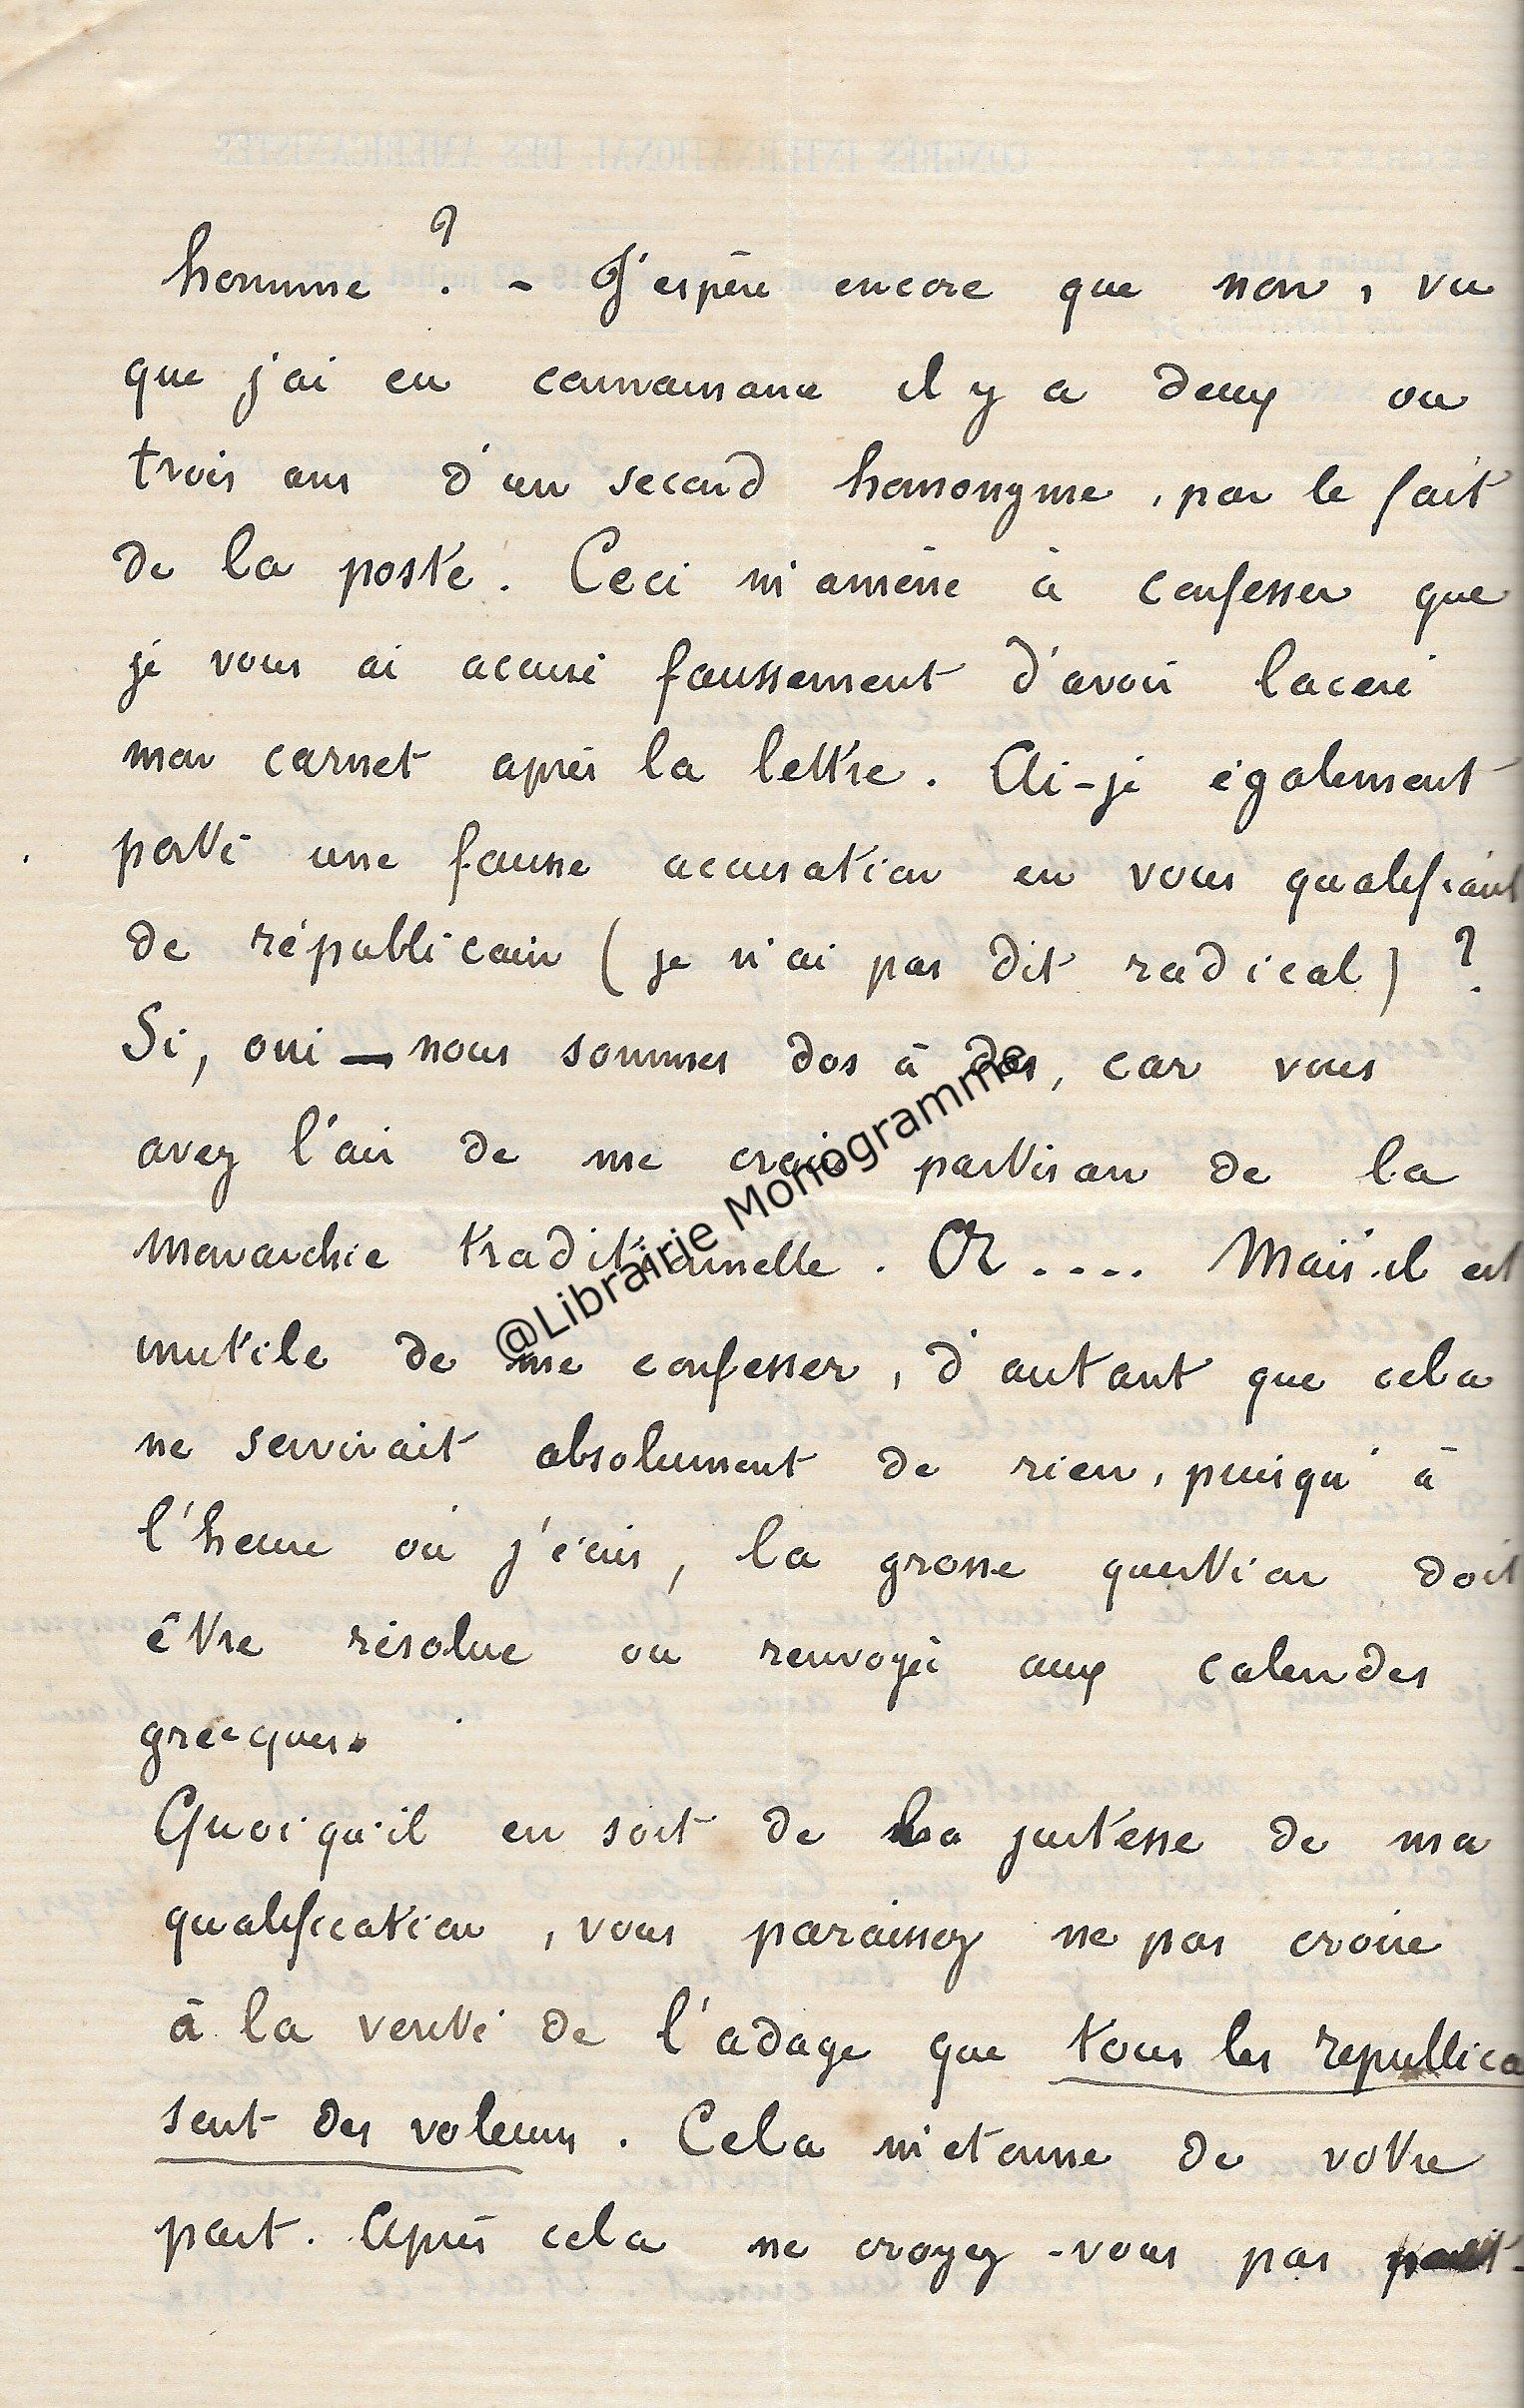 homme ? - J'espère encore que non, vu
que j'ai eu connaissance il y a deux ou
trois ans d'un second homonyme, par le fait
de la poste. Ceci m'amène à confesser que
je vous ai accusé faussement d'avoir lacéré
mon carnet après la lettre. Ai-je également
porté une fausse accusation en vous qualifiant
de républicain (je n'ai pas dit radical) ?
Si, oui — nous sommes dos à dos, car vous
avez l'air de me croire partisan de la
monarchie traditionnelle. Or .... Mais il est
inutile de me confesser, d'autant que cela
ne servirait absolument de rien, puisqu'à
l'heure où j'écris, la grosse question doit
être résolue ou renvoyée aux calendes
grecques.
Quoiqu'il en soit de la justesse de ma
qualification, vous paraissez ne pas croire
à la verité de l'adage que tous les republica
sont des voleurs. Cela m'etonne de votre
part. Après cela ne croyez-vous pas
@Librairie Monogramme